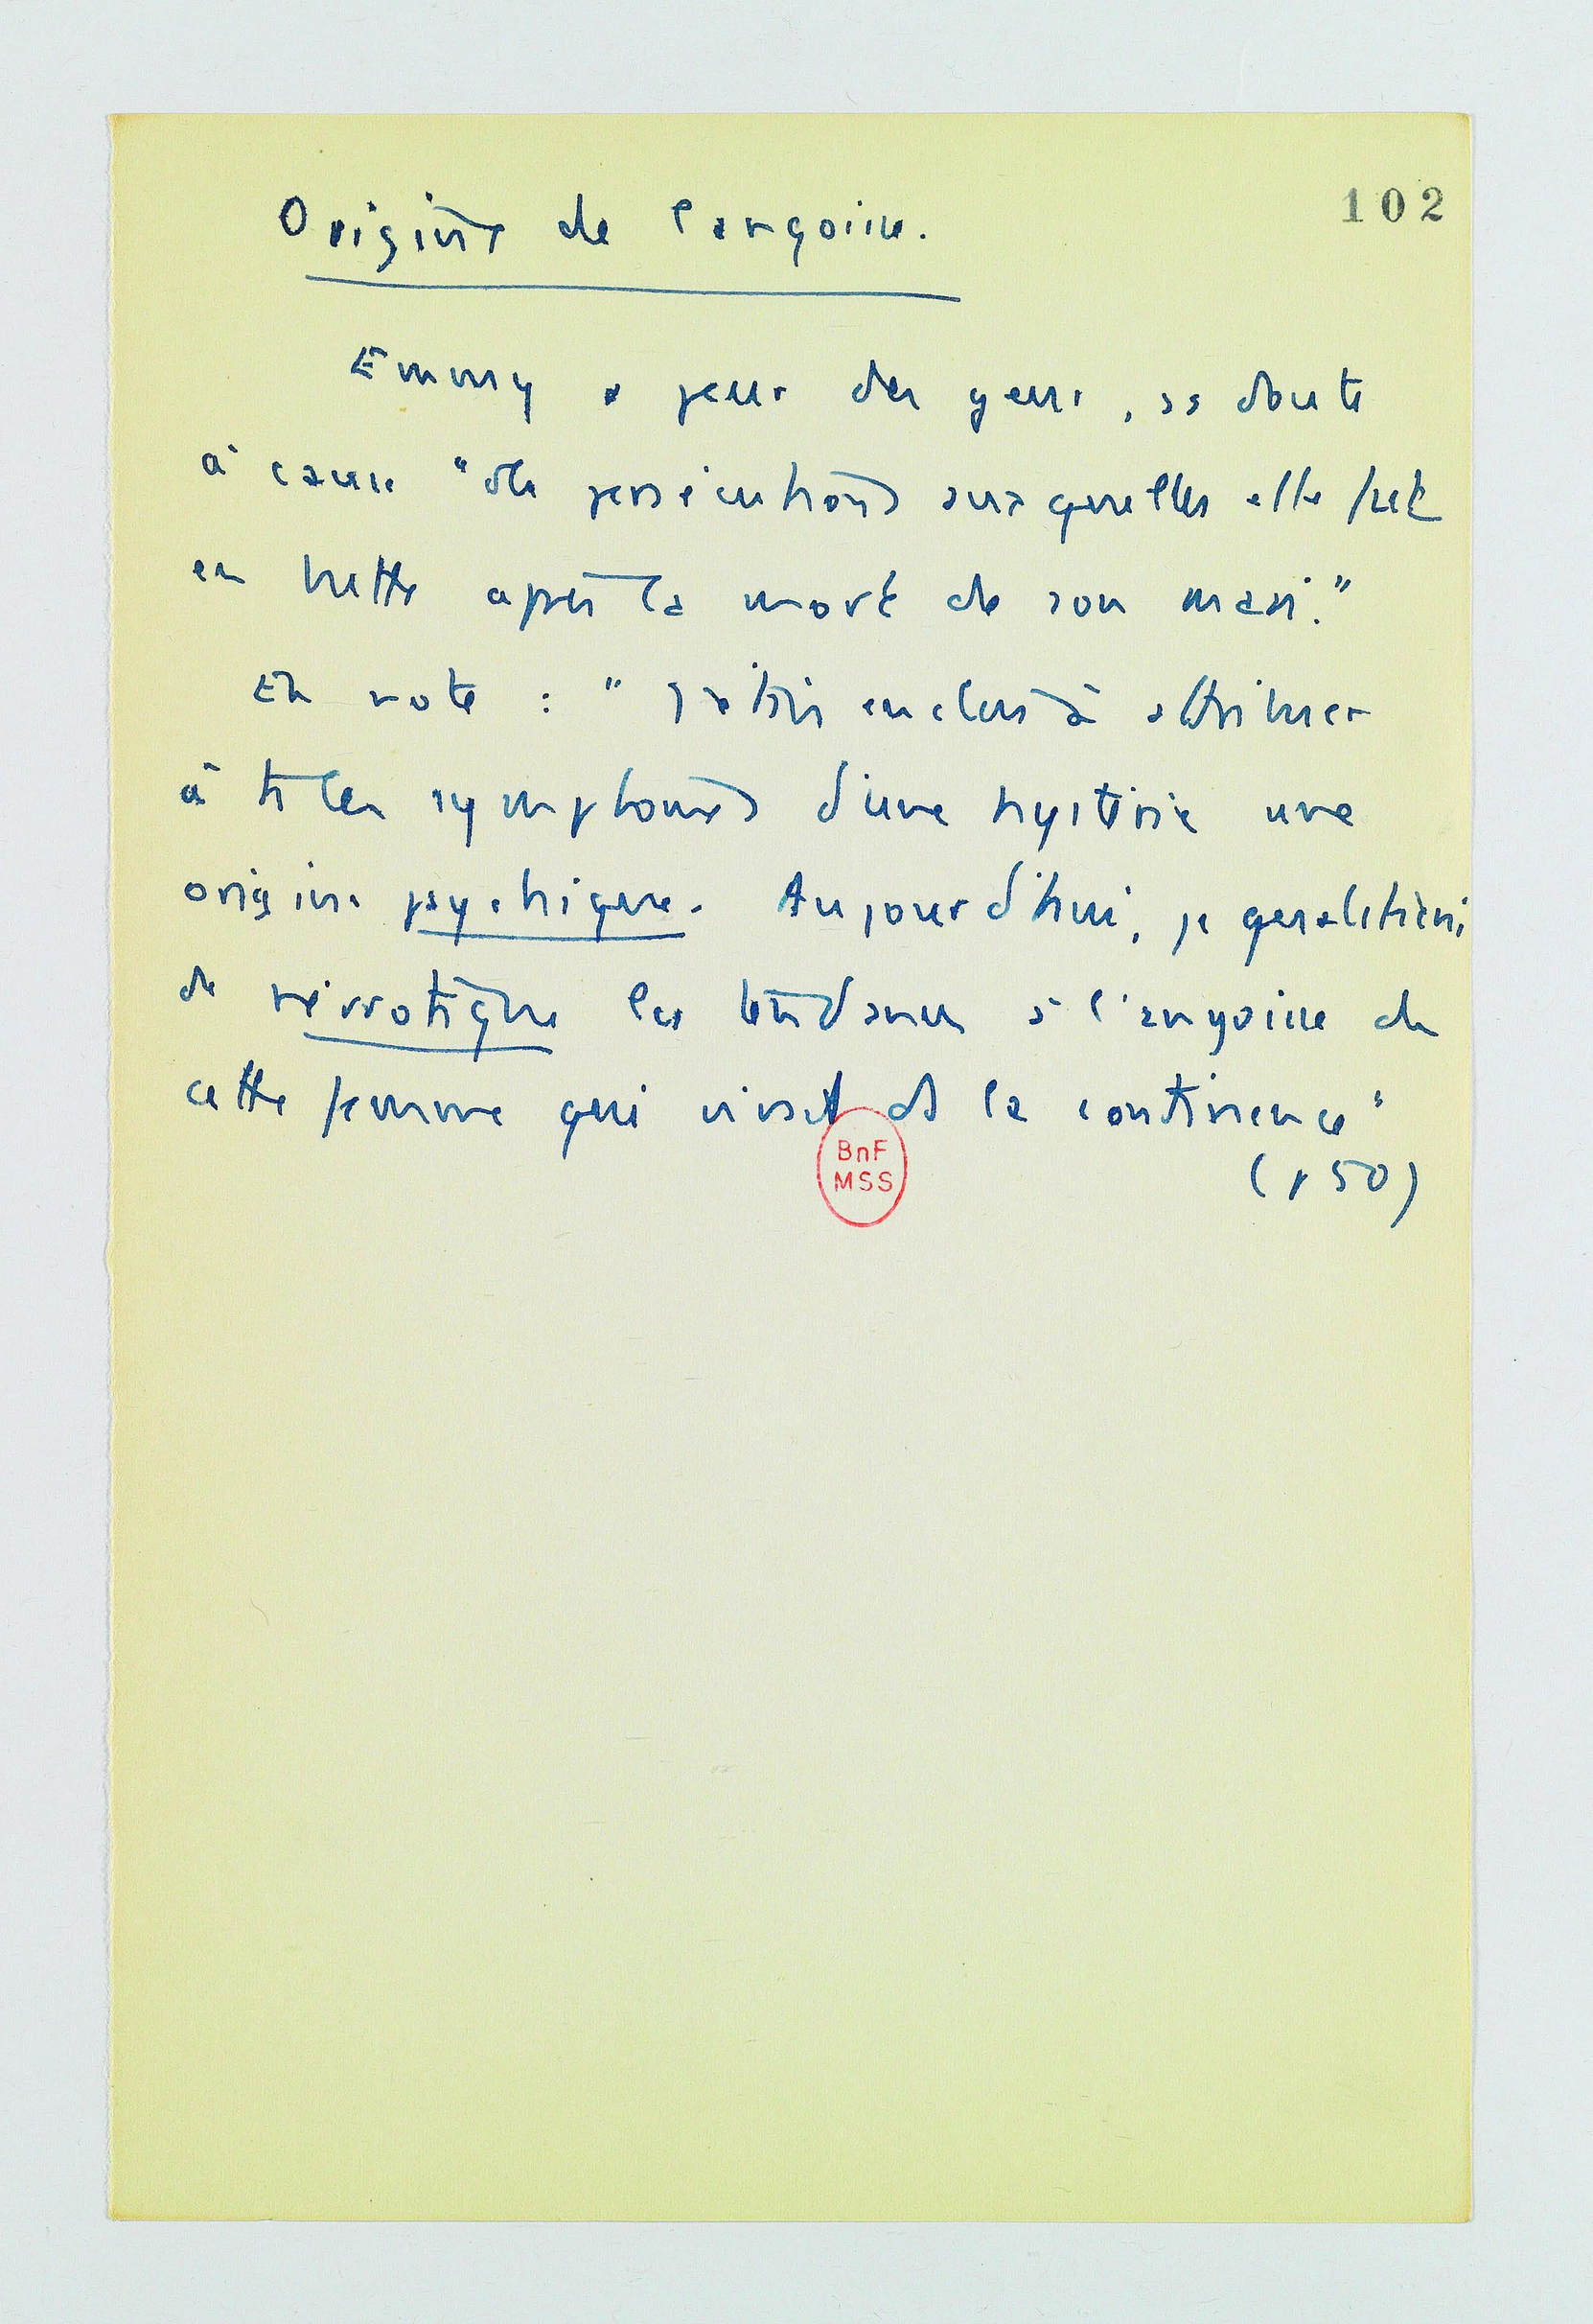 102
Origine de l'angoisse.
Emmy a peur des gens, ss doute
à cause "des persécutions auxquelles elle fut
en butte après la mort de son mari."
En note : " J'étais enclin à attribuer
à ts les symptomes d'une hystérie une
origine psychique. Aujourd'hui, je qualifierai
de névrotique les tendances à l'angoisse de
cette femme qui vivait ds la continence"
(p 50)
BnF
MSS